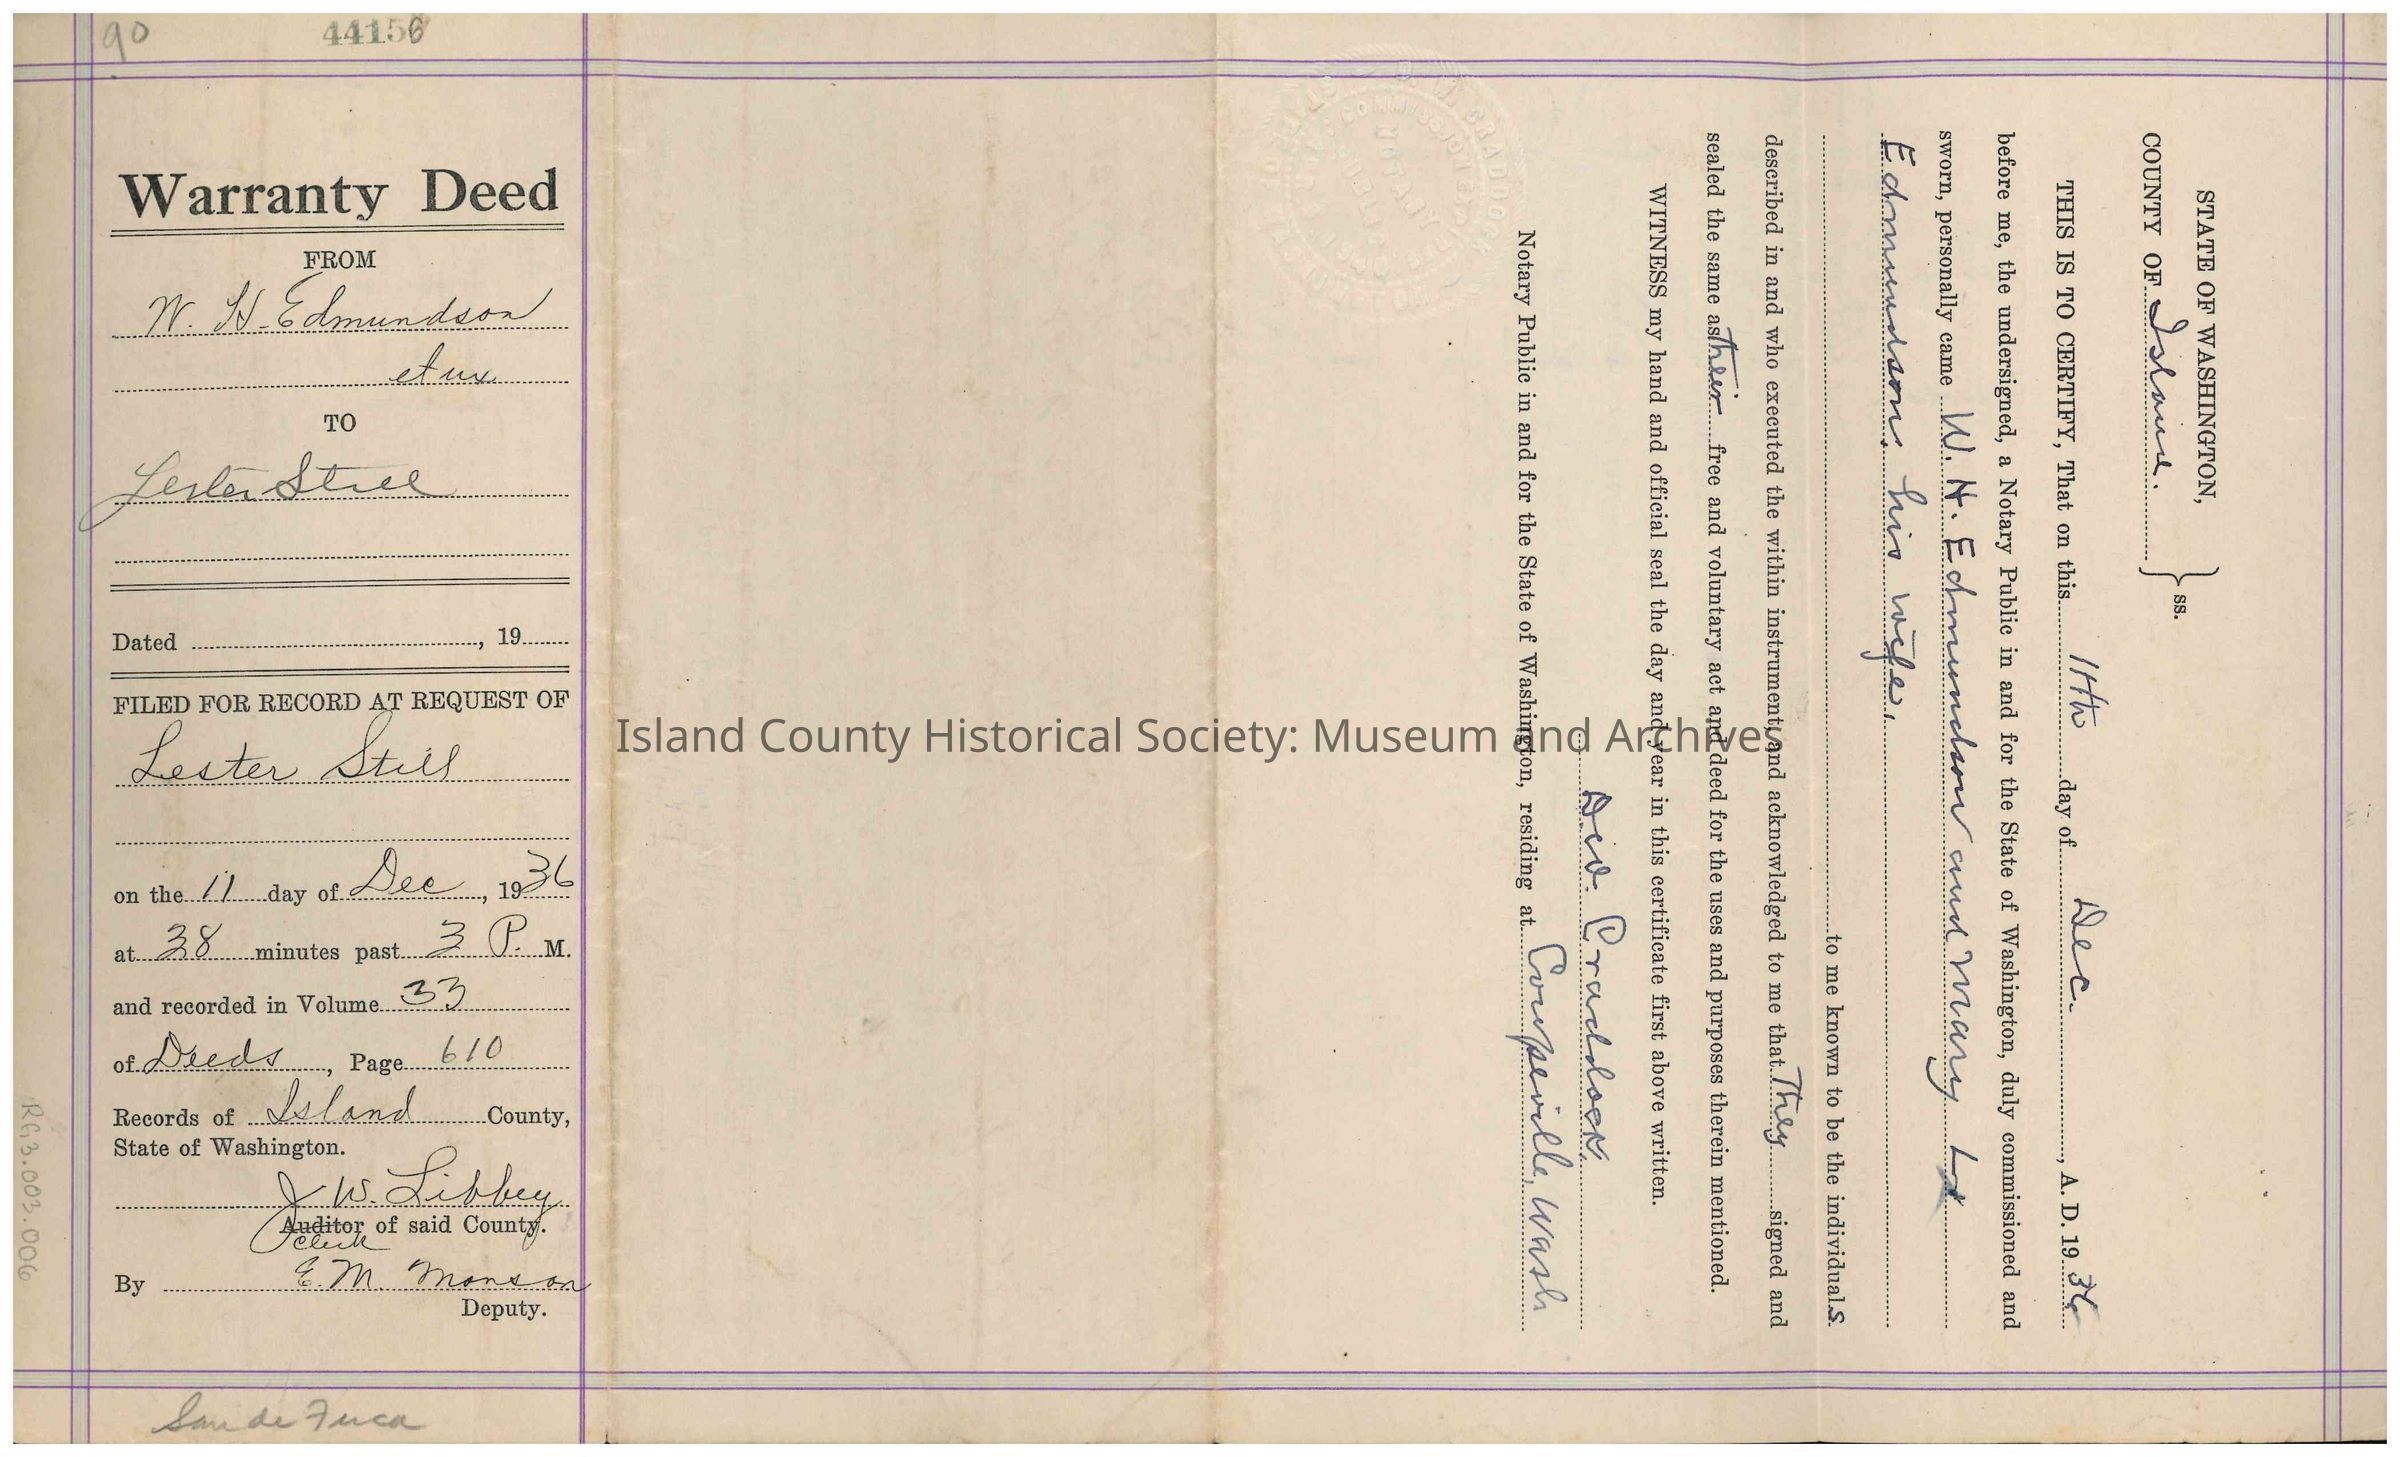 90
44156
Warranty Deed
FROM
W. H. Edmundson
et ux
TO
Lester Still
Dated , 19
FILED FOR RECORD AT REQUEST OF
Lester Still
on the 11 day of Dec , 1936
at 38 minutes past 3 P. M.
and recorded in Volume 33
of Deeds , Page 610
Records of Island County,
State of Washington.
J W. Libbey
Auditor of said County.
clerk
By E. M. Monson
Deputy.
San de Fuca
RG3.003.006
Island County Historical Society: Museum and Archives
STATE OF WASHINGTON,
COUNTY OF Island. } ss.
THIS IS TO CERTIFY, That on this 11th day of Dec. , A. D. 1936
before me, the undersigned, a Notary Public in and for the State of Washington, duly commissioned and
sworn, personally came W. H. Edmundson and Mary L
Edmundson, his wife,
to me known to be the individuals
described in and who executed the within instrument, and acknowledged to me that They signed and
sealed the same as their free and voluntary act and deed for the uses and purposes therein mentioned.
WITNESS my hand and official seal the day and year in this certificate first above written.
Craddock
Notary Public in and for the State of Washington, residing at Coupeville, Wash
CRADDOCK
COMMISSION EXPIRES
NOTARY
PUBLIC
1940